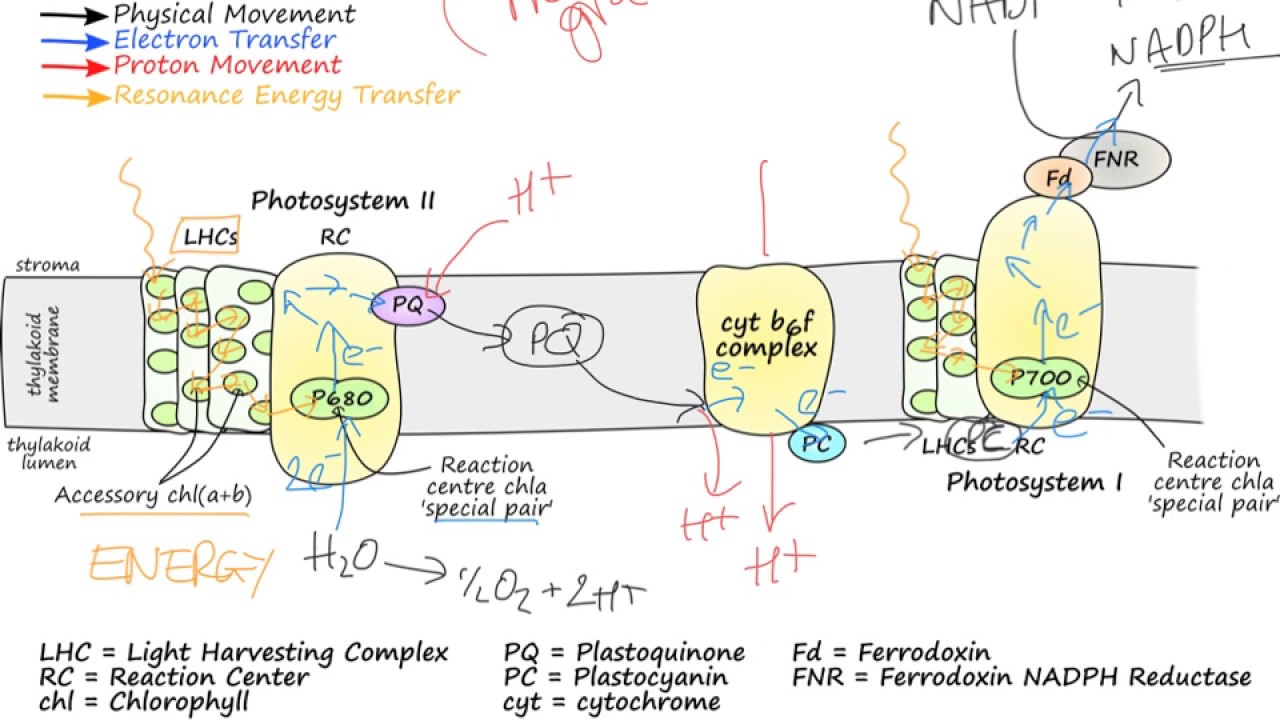 Physical Movement
Electron Transfer
Proton Movement
Resonance Energy Transfer
NADPH
FNR
Fd
H+
Photosystem II
LHCs
RC
stroma
thylakoid
membrane
thylakoid
lumen
PQ
PQ
cyt b6f
complex
e-
e-
e-
e-
e-
P680
P700
PC
LHCs
PC
RC
Photosystem I
2e-
Reaction
centre chla
'special pair'
Reaction
centre chla
'special pair'
Accessory chl(a+b)
ENERGY
H2O
½O2 + 2H+
H+
H+
LHC = Light Harvesting Complex
RC = Reaction Center
chl = Chlorophyll
PQ = Plastoquinone
PC = Plastocyanin
cyt = cytochrome
Fd = Ferrodoxin
FNR = Ferrodoxin NADPH Reductase